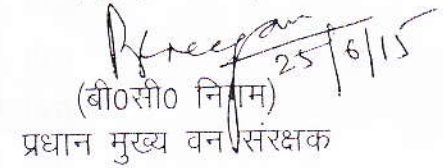 25/6/15
(बी0सी0 निगम)
प्रधान मुख्य वन संरक्षक